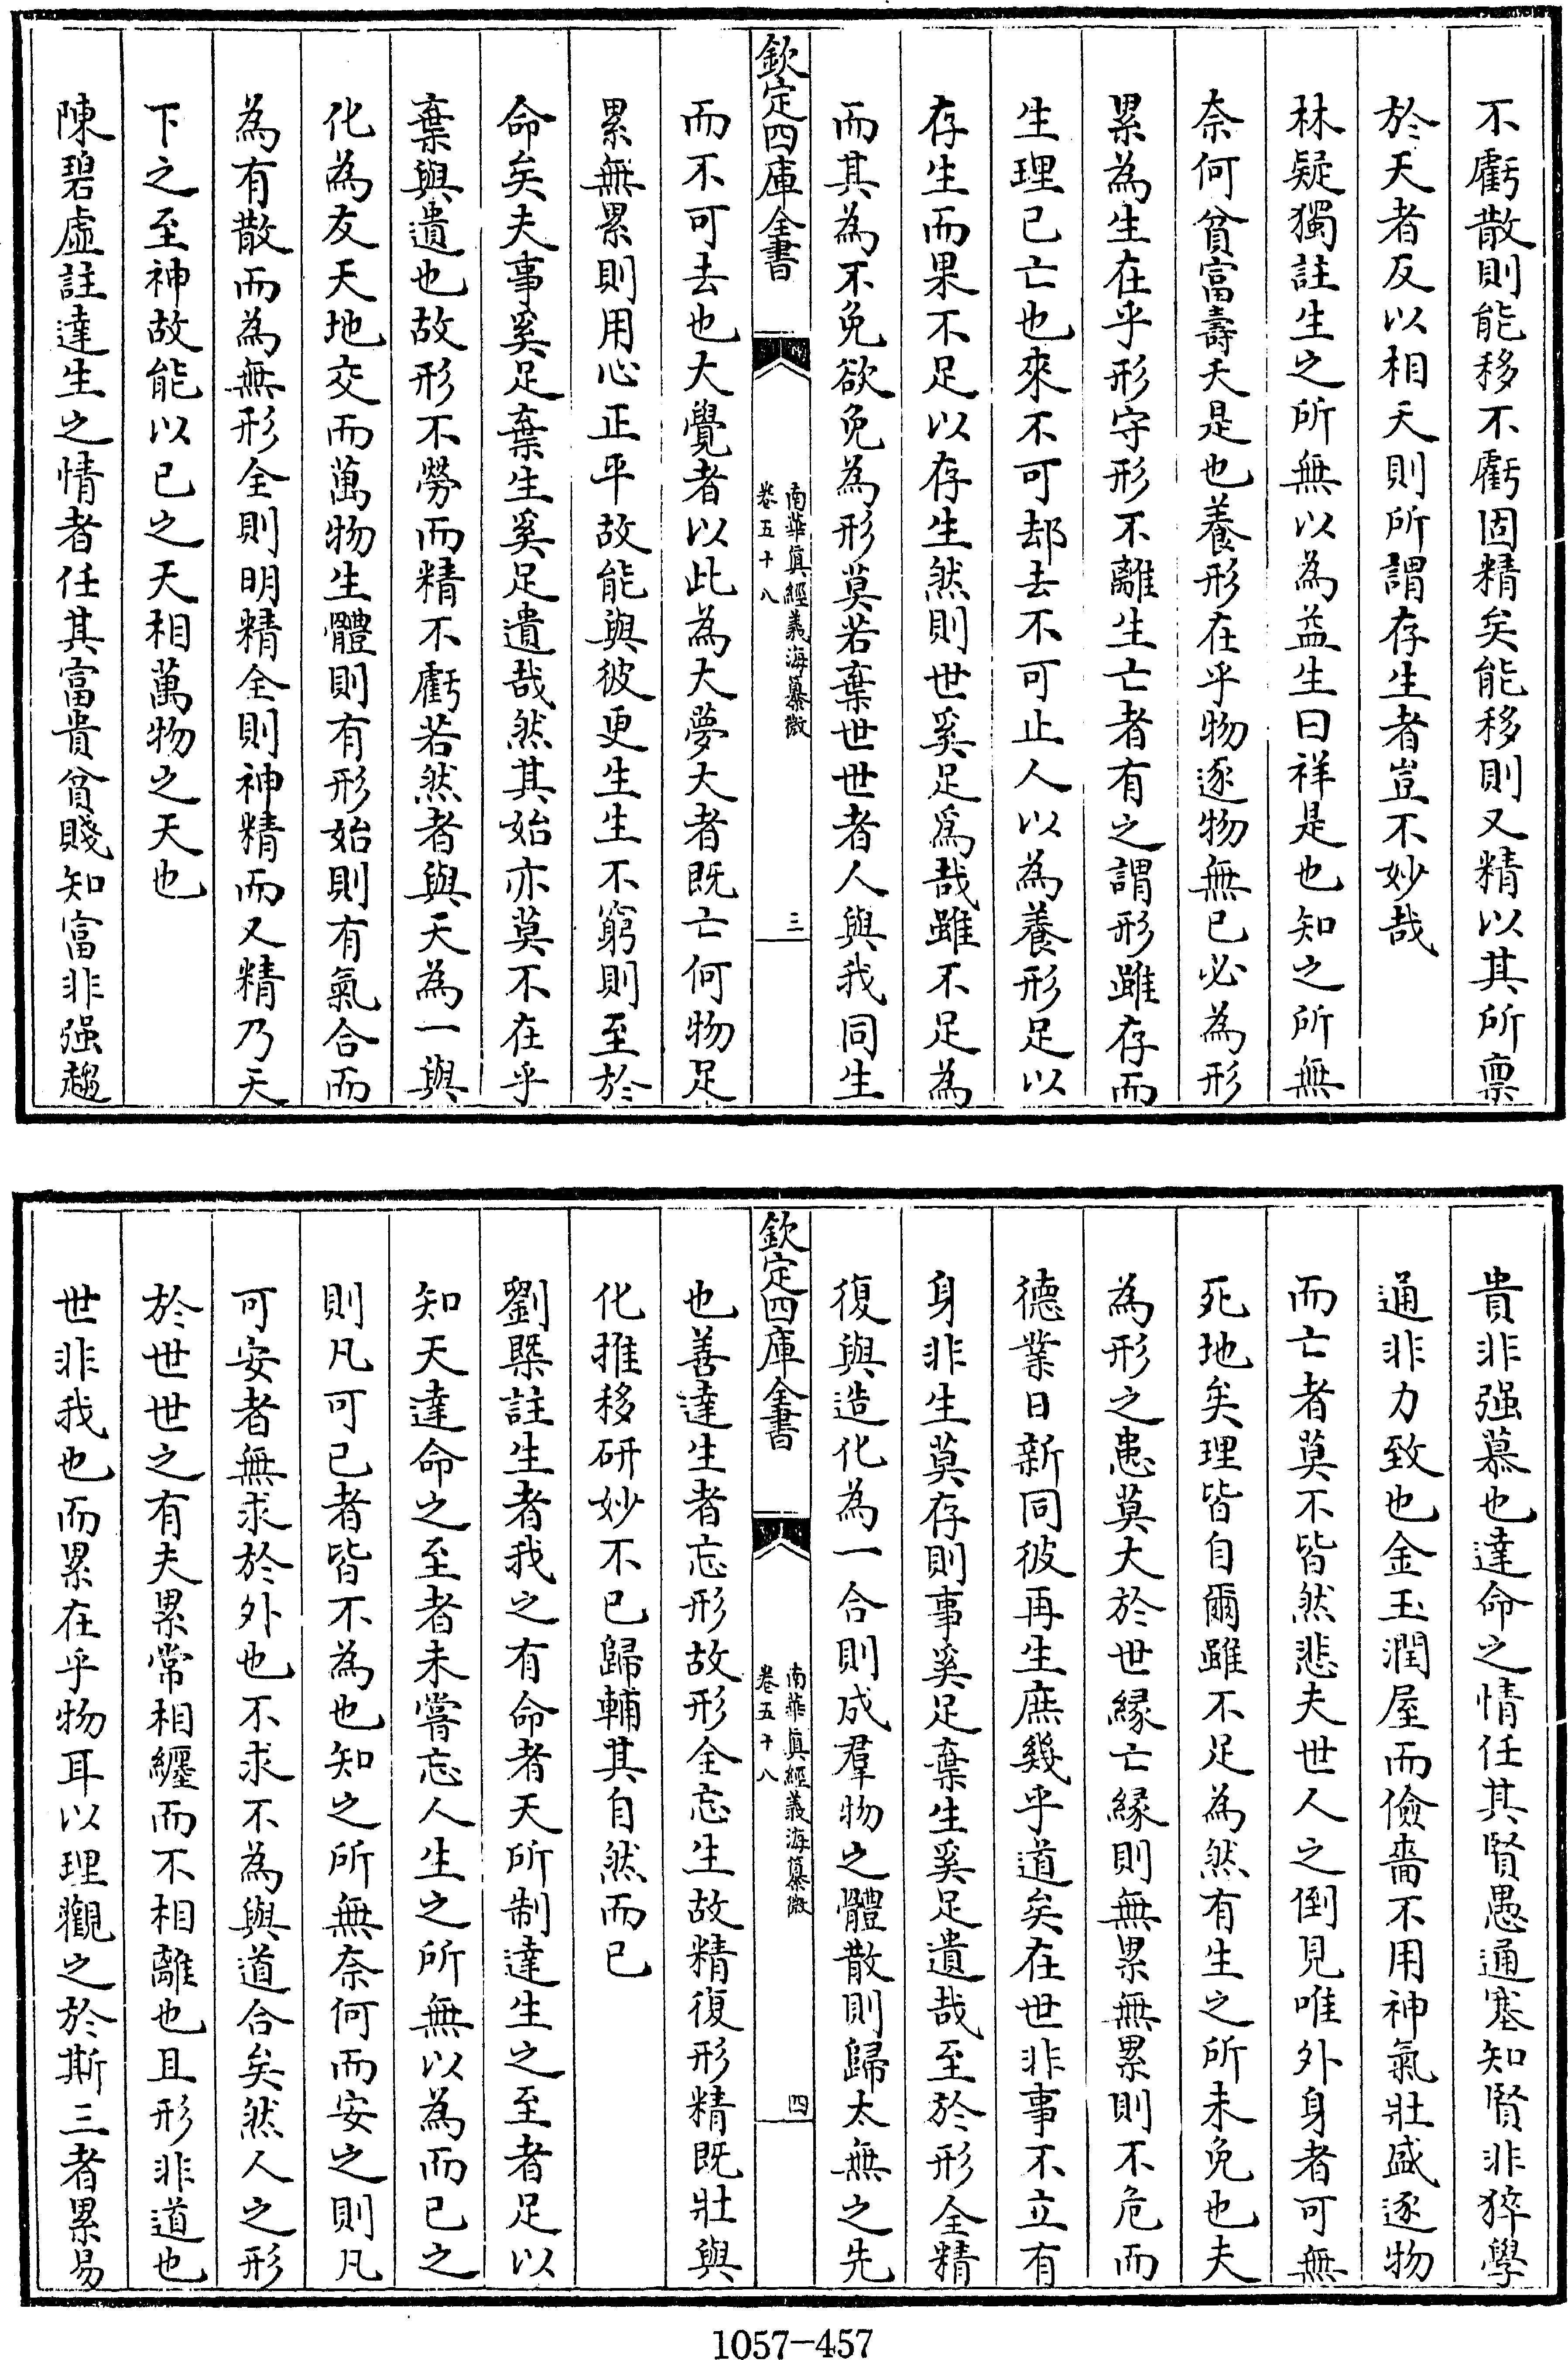 不虧散則能移不虧固精矣能移則又精以其所稟
於天者反以相天則所謂存生者豈不妙哉
林疑獨註生之所無以為益生曰祥是也知之所無
奈何貧富壽夭是也養形在乎物逐物無已必為形
累為生在乎形守形不離生亡者有之謂形雖存而
生理已亡也來不可却去不可止人以為養形足以
存生而果不足以存生然則世奚足為哉雖不足為
而其為不免欲免為形莫若棄世世者人與我同生
欽定四庫全書
南華真經義海纂微
卷五十八
三
而不可去也大覺者以此為大夢大者既亡何物足
累無累則用心正平故能與彼更生生不窮則至於
命矣夫事奚足棄生奚足遺哉然其始亦莫不在乎
棄與遺也故形不勞而精不虧若然者與天為一與
化為友天地交而萬物生體則有形始則有氣合而
為有散而為無形全則明精全則神精而又精乃天
下之至神故能以己之天相萬物之天也
陳碧虛註達生之情者任其富貴貧賤知富非强趨
貴非强慕也達命之情任其賢愚通塞知賢非猝學
通非力致也金玉潤屋而儉嗇不用神氣壯盛逐物
而亡者莫不皆然悲夫世人之倒見唯外身者可無
死地矣理皆自爾雖不足為然有生之所未免也夫
為形之患莫大於世緣亡緣則無累無累則不危而
德業日新同彼再生庶幾乎道矣在世非事不立有
身非生莫存則事奚足棄生奚足遺哉至於形全精
復與造化為一合則成羣物之體散則歸太無之先
欽定四庫全書
南華真經義海纂微
卷五十八
四
也善達生者忘形故形全忘生故精復形精既壯與
化推移研妙不已歸輔其自然而已
劉槩註生者我之有命者天所制達生之至者足以
知天達命之至者未嘗忘人生之所無以為而已之
則凡可已者皆不為也知之所無奈何而安之則凡
可安者無求於外也不求不為與道合矣然人之形
於世世之有夫累常相纒而不相離也且形非道也
世非我也而累在乎物耳以理觀之於斯三者累易
1057-457